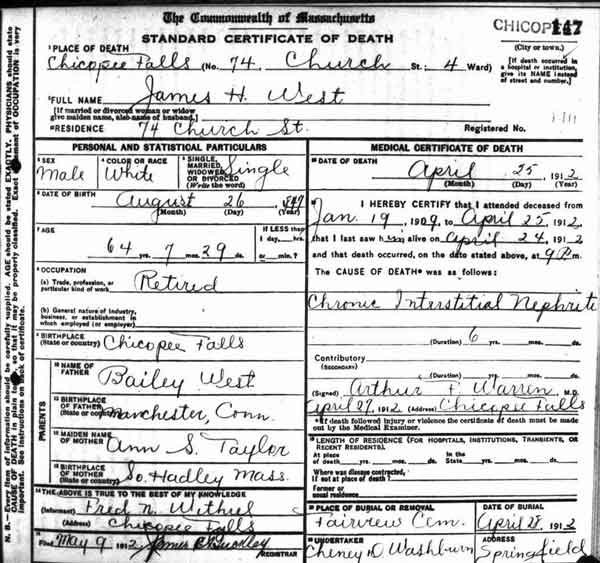 The Commonwealth of Massachusetts
STANDARD CERTIFICATE OF DEATH
CHICOPEE 147
(City or town.)
1 PLACE OF DEATH
Chicopee Falls (No. 74, Church St.: 4 Ward)
[If death occurred in a hospital or institution, give its NAME instead of street and number.]
2 FULL NAME James H. West
[If married or divorced woman or widow give maiden name, also name of husband.]
RESIDENCE 74 Church St. Registered No.
PERSONAL AND STATISTICAL PARTICULARS
3 SEX Male
4 COLOR OR RACE White
5 SINGLE, MARRIED, WIDOWED OR DIVORCED (Write the word) Single
6 DATE OF BIRTH August 26, 1847
(Month) (Day) (Year)
7 AGE 64 yrs. 7 mos. 29 ds.
If LESS than 1 day, hrs. or min.?
8 OCCUPATION
(a) Trade, profession, or particular kind of work Retired
(b) General nature of industry, business, or establishment in which employed (or employer)
9 BIRTHPLACE (State or country) Chicopee Falls
PARENTS
10 NAME OF FATHER Bailey West
11 BIRTHPLACE OF FATHER (State or country) Manchester, Conn.
12 MAIDEN NAME OF MOTHER Ann S. Taylor
13 BIRTHPLACE OF MOTHER (State or country) So. Hadley Mass.
14 THE ABOVE IS TRUE TO THE BEST OF MY KNOWLEDGE
(Informant) Fred N.
(Address) Chicopee Falls
15 Filed May 9, 1912 REGISTRAR
MEDICAL CERTIFICATE OF DEATH
16 DATE OF DEATH April 25, 1912
(Month) (Day) (Year)
17 I HEREBY CERTIFY that I attended deceased from
Jan. 19, 1909, to April 25, 1912,
that I last saw him alive on April 24, 1912
and that death occurred, on the date stated above, at 9 P. m.
The CAUSE OF DEATH* was as follows:
Chronic Interstitial Nephritis
(Duration) 6 yrs. mos. ds.
Contributory (SECONDARY)
(Duration) yrs. mos. ds.
(Signed) Arthur F. Warren, M.D.
April 27, 1912 (Address) Chicopee Falls
*If death followed injury or violence the certificate of death must be made out by the Medical Examiner.
18 LENGTH OF RESIDENCE (FOR HOSPITALS, INSTITUTIONS, TRANSIENTS, OR RECENT RESIDENTS).
At place of death yrs. mos. ds. In the State yrs. mos. ds.
Where was disease contracted, if not at place of death?
Former or usual residence
19 PLACE OF BURIAL OR REMOVAL Fairview Cem.
DATE OF BURIAL April 28, 1912
20 UNDERTAKER Cheney D Washburn
ADDRESS Springfield